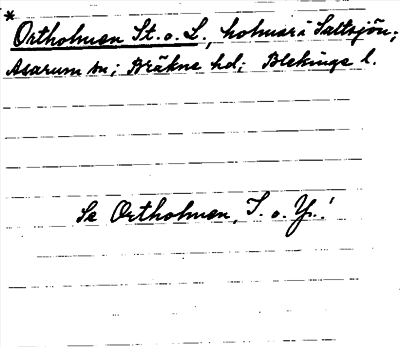 *
Ortholmen St. o. L., holmar i Saltsjön;
Asarum sn; Bräkne hd; Blekinge l.
Se Ortholmen, S. o. Y.!